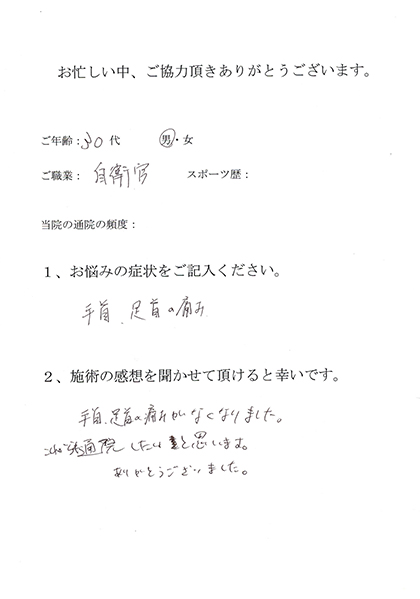 お忙しい中、ご協力頂きありがとうございます。
ご年齢：30代 男・女
ご職業：自衛官 スポーツ歴：
当院の通院の頻度：
１、お悩みの症状をご記入ください。
手首、足首の痛み
２、施術の感想を聞かせて頂けると幸いです。
手首、足首の痛みがなくなりました。
通院したいと思います。
ありがとうございました。